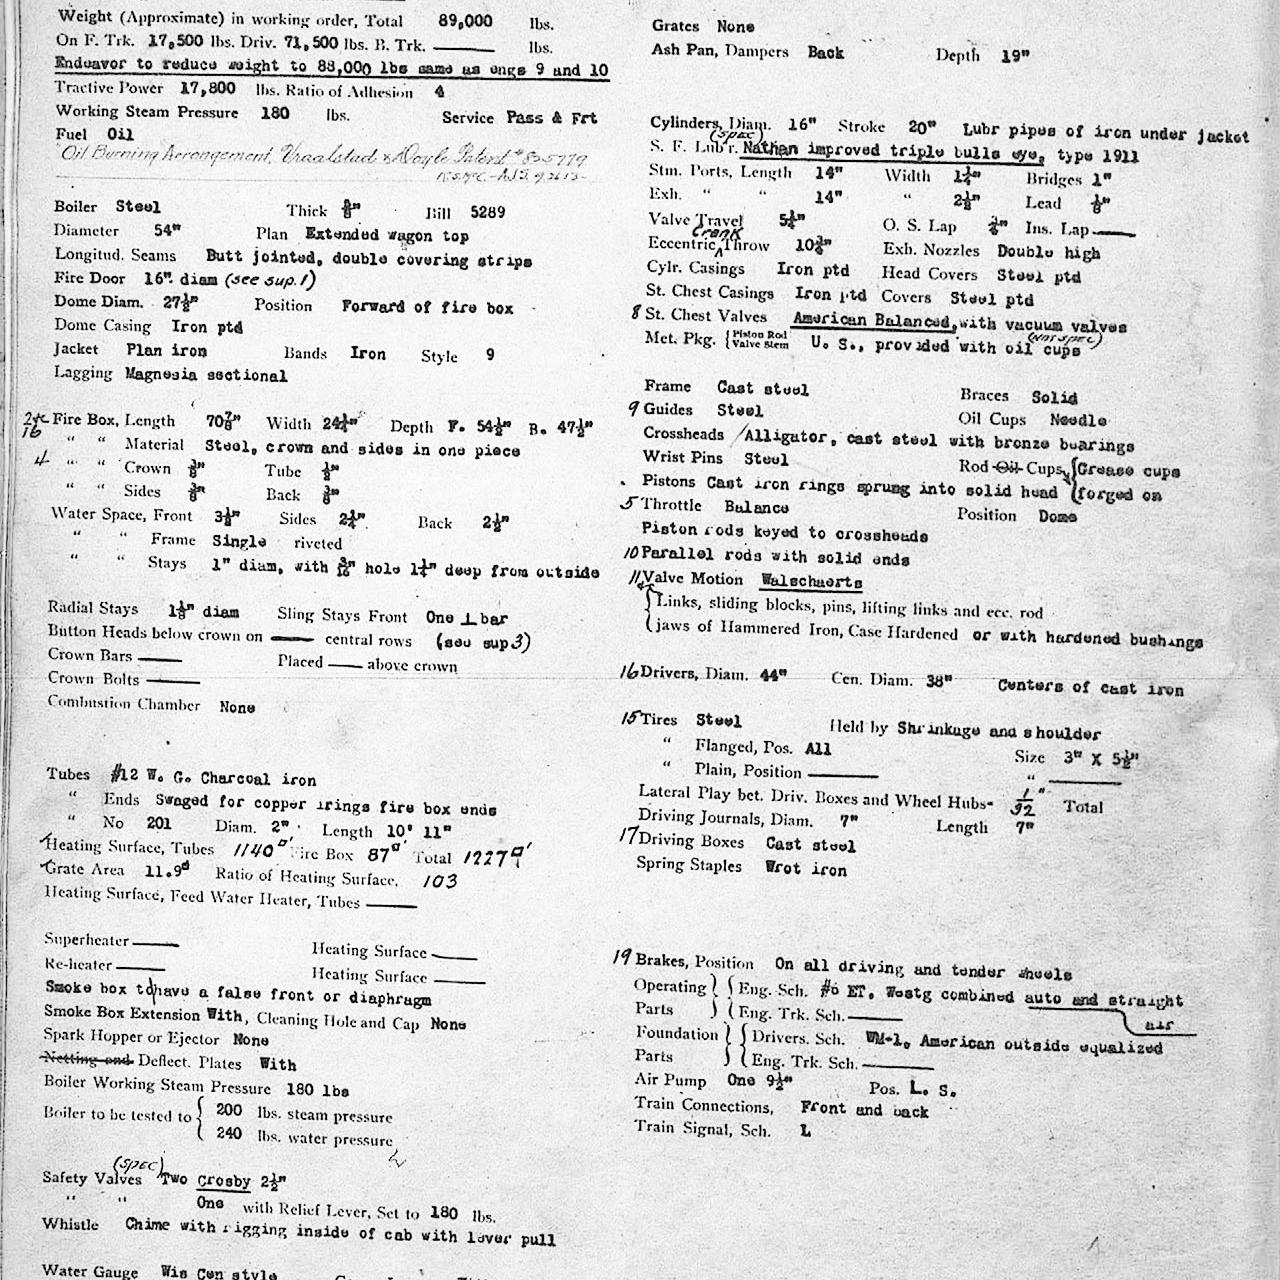 Weight (Approximate) in working order, Total 89,000 lbs.
On F. Trk. 17,500 lbs. Driv. 71,500 lbs. B. Trk. —— lbs.
Endeavor to reduce weight to 88,000 lbs same as engs 9 and 10
Tractive Power 17,800 lbs. Ratio of Adhesion 4
Working Steam Pressure 180 lbs. Service Pass & Frt
Fuel Oil
Oil Burning Arrangement, Vraalstad & Doyle Patent #835779
Boiler Steel Thick ⅝" Bill 5289
Diameter 54" Plan Extended wagon top
Longitud. Seams Butt jointed, double covering strips
Fire Door 16" diam (see sup. 1)
Dome Diam. 27½" Position Forward of fire box
Dome Casing Iron ptd
Jacket Plan iron Bands Iron Style 9
Lagging Magnesia sectional
Fire Box, Length 70⅞" Width 24¼" Depth F. 54½" B. 47½"
" " Material Steel, crown and sides in one piece
4 " " Crown ⅜" Tube ½"
" " Sides ⅜" Back ⅜"
Water Space, Front 3½" Sides 2¼" Back 2½"
" " Frame Single riveted
" " Stays 1" diam, with 3/16" hole 1¼" deep from outside
Radial Stays 1⅛" diam Sling Stays Front One ⊥ bar
Button Heads below crown on —— central rows (see sup 3)
Crown Bars —— Placed —— above crown
Crown Bolts ——
Combustion Chamber None
Tubes #12 W. G. Charcoal iron
" Ends Swaged for copper rings fire box ends
" No 201 Diam. 2" Length 10' 11"
Heating Surface, Tubes 1140□' Fire Box 87□' Total 1227□'
Grate Area 11.9□ Ratio of Heating Surface, 103
Heating Surface, Feed Water Heater, Tubes ——
Superheater —— Heating Surface ——
Re-heater —— Heating Surface ——
Smoke box to have a false front or diaphragm
Smoke Box Extension With, Cleaning Hole and Cap None
Spark Hopper or Ejector None
Netting and Deflect. Plates With
Boiler Working Steam Pressure 180 lbs
Boiler to be tested to { 200 lbs. steam pressure
{ 240 lbs. water pressure
(SPEC)
Safety Valves Two Crosby 2½"
" " One with Relief Lever, Set to 180 lbs.
Whistle Chime with rigging inside of cab with lever pull
Water Gauge Wis Cen style
Grates None
Ash Pan, Dampers Back Depth 19"
Cylinders, Diam. 16" Stroke 20" Lubr pipes of iron under jacket
(SPEC)
S. F. Lub'r. Nathan improved triple bulls eye, type 1911
Stm. Ports, Length 14" Width 1¼" Bridges 1"
Exh. " " 14" " 2½" Lead ⅛"
Valve Travel 5¼" O. S. Lap Ins. Lap ——
Crank
Eccentric ^ Throw 10¾" Exh. Nozzles Double high
Cylr. Casings Iron ptd Head Covers Steel ptd
St. Chest Casings Iron ptd Covers Steel ptd
8 St. Chest Valves American Balanced, with vacuum valves
Met. Pkg. { Piston Rod Valve Stem U. S., provided with oil cups (NOT SPEC)
Frame Cast steel Braces Solid
9 Guides Steel Oil Cups Needle
Crossheads Alligator, cast steel with bronze bearings
Wrist Pins Steel Rod Oil Cups { Grease cups
Pistons Cast iron rings sprung into solid head { forged on
5 Throttle Balance Position Dome
Piston rods keyed to crossheads
10 Parallel rods with solid ends
11 Valve Motion Walschaerts
{ Links, sliding blocks, pins, lifting links and ecc. rod
{ jaws of Hammered Iron, Case Hardened or with hardened bushings
16 Drivers, Diam. 44" Cen. Diam. 38" Centers of cast iron
15 Tires Steel Held by Shrinkage and shoulder
" Flanged, Pos. All Size 3" X 5½"
" Plain, Position —— " ——
Lateral Play bet. Driv. Boxes and Wheel Hubs- 1/32" Total
Driving Journals, Diam. 7" Length 7"
17 Driving Boxes Cast steel
Spring Staples Wrot iron
19 Brakes, Position On all driving and tender wheels
Operating } { Eng. Sch. #6 ET. Westg combined auto and straight air
Parts } { Eng. Trk. Sch. ——
Foundation } { Drivers. Sch. WM-1, American outside equalized
Parts } { Eng. Trk. Sch. ——
Air Pump One 9½" Pos. L. S.
Train Connections, Front and back
Train Signal, Sch. L